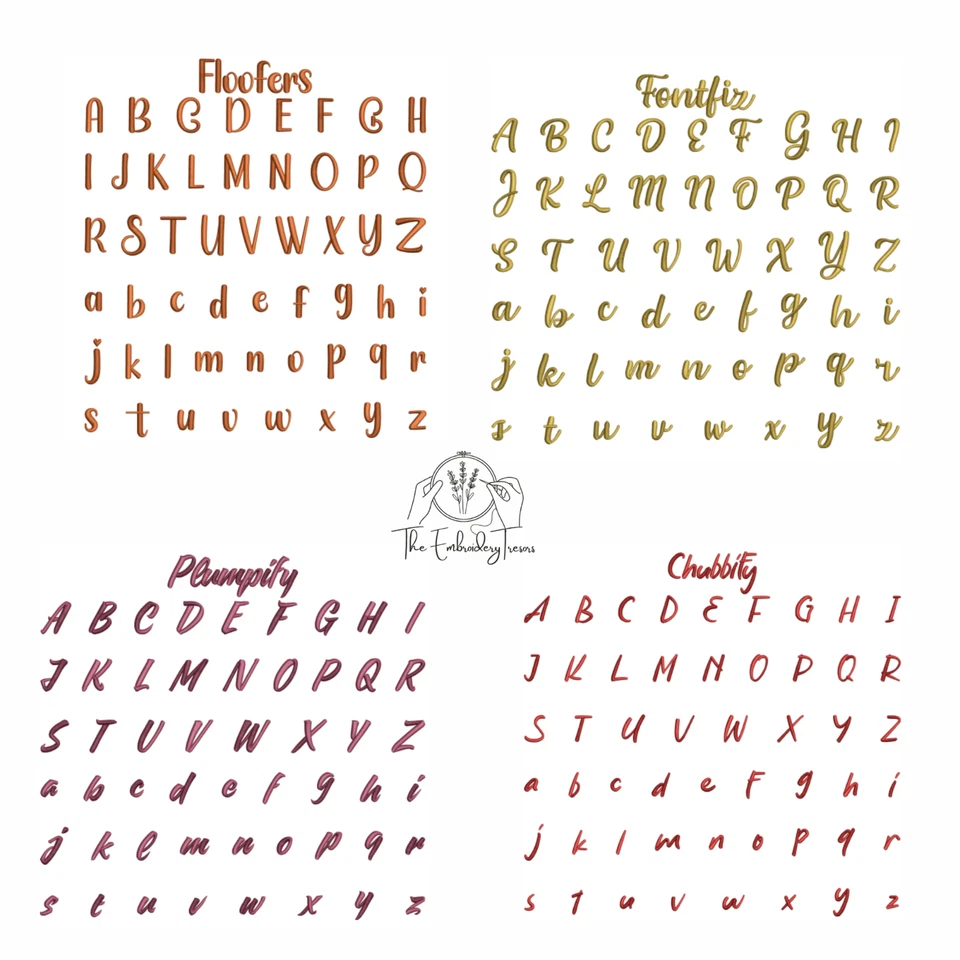 Floofers
A B C D E F G H
I J K L M N O P Q
R S T U V W X Y Z
a b c d e f g h i
j k l m n o p q r
s t u v w x y z
Fontfiz
A B C D E F G H I
J K L M N O P Q R
S T U V W X Y Z
a b c d e f g h i
j k l m n o p q r
s t u v w x y z
The Embroidery Tresors
Plumpify
A B C D E F G H I
J K L M N O P Q R
S T U V W X Y Z
a b c d e f g h i
j k l m n o p q r
s t u v w x y z
Chubbify
A B C D E F G H I
J K L M N O P Q R
S T U V W X Y Z
a b c d e f g h i
j k l m n o p q r
s t u v w x y z